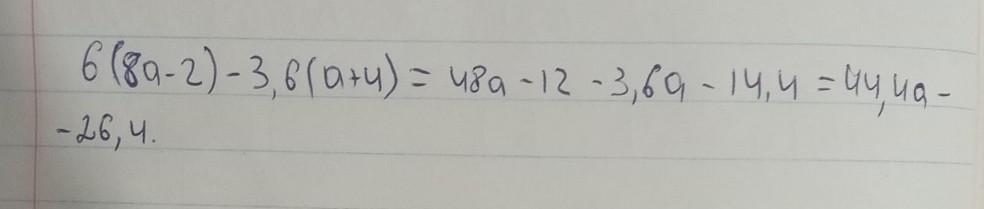 6(8a-2)-3,6(a+4)=48a-12-3,6a-14,4=44,4a-
-26,4.